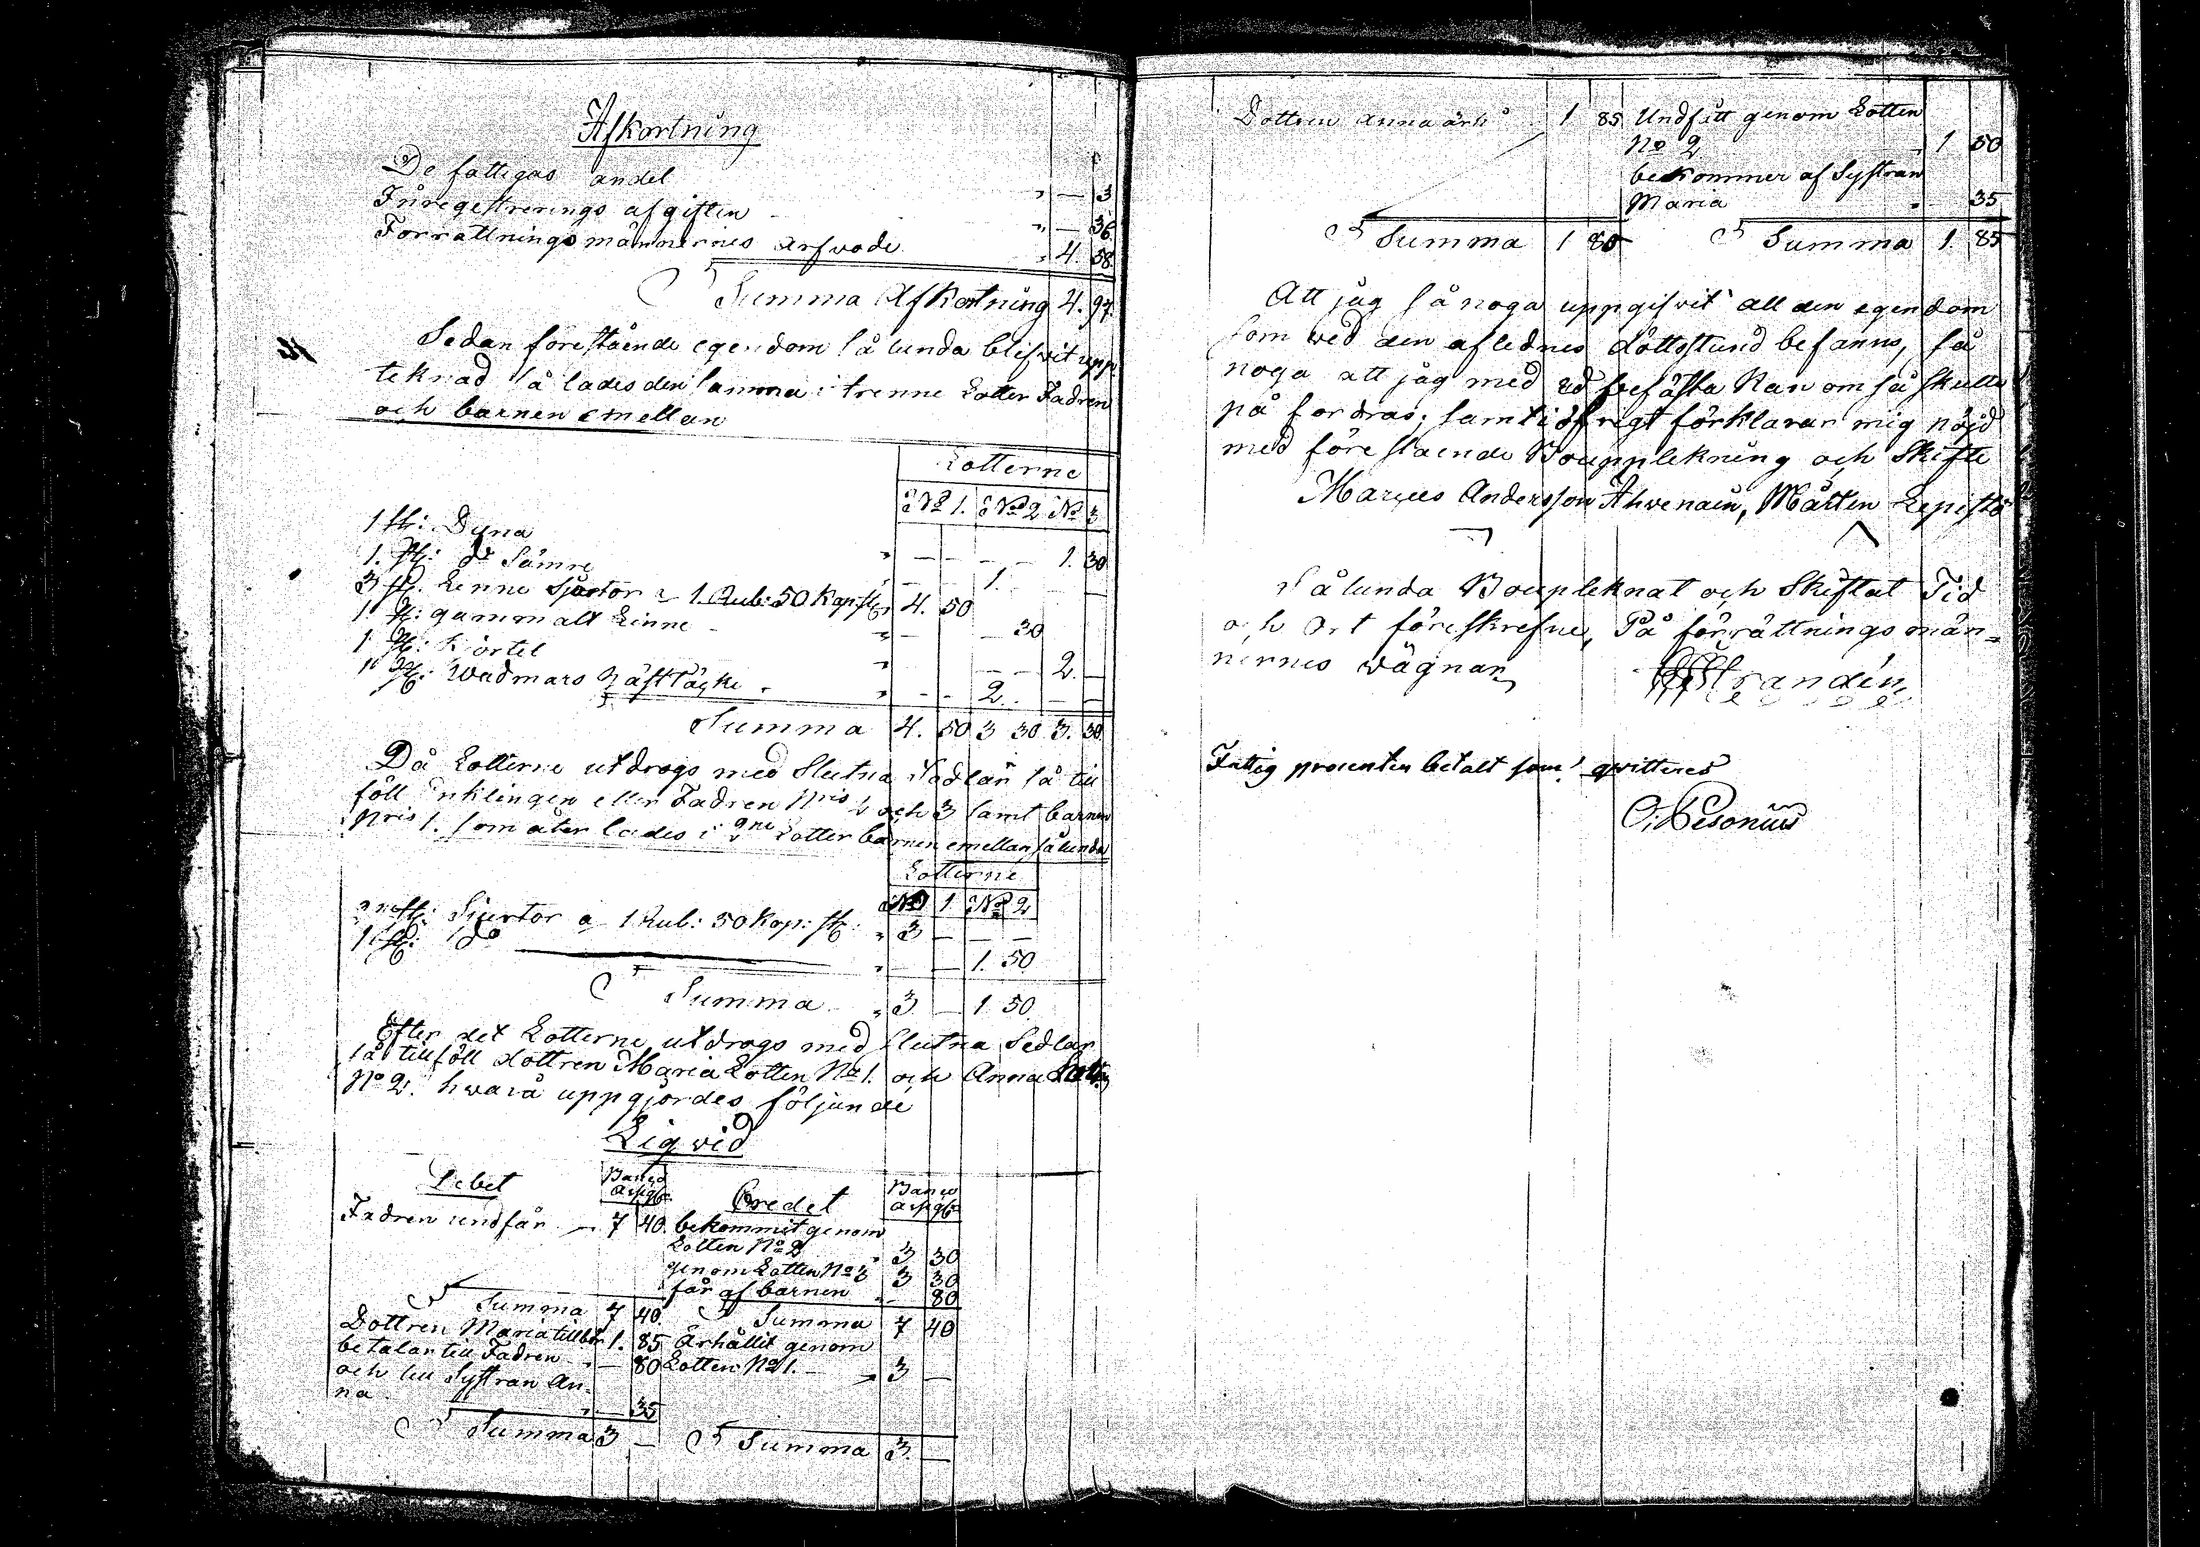 Afkortning
De fattigas andel " — 3
Inregestrerings afgiften " — 36
Förrättningsmännernes arfvode " 4. 58.
Summa Afkortning 4. 97.
Sedan förestående egendom sålunda blifvit upp
teknad så lades den samma i trenne Lotter Fadren
och barnen emellan
Lotterne
No 1. No 2 No 3
1 st: Dyna " — — — — 1. 30
1. st: do Sämre — — 1. — —
3 st. Linne Sjortor a 1. Rub: 50 Kop st 4. 50
1 st: gammalt Linne " — — 30
1 st: Kjortel " — — 2. —
1 st: Wadmars Hästtäcke " — — 2. — —
Summa 4. 50 3 30 3. 30.
Då Lotterne utdrogs med Slutna Sedlar så till
föll Enklingen eller Fadren Nris 2 och 3 samt barnen
Nris 1. som åter lades i 2ne Lotter barnen emellan sålunda
Lotterne
No 1 No 2
2ne st: Sjortor a 1 Rub: 50 Kop: st " 3 — — —
1 st: do " — — 1. 50
Summa " 3 — 1. 50.
Efter det Lotterne utdrogs med Slutna Sedlar
så tillföll dottren Maria Lotten No 1. och Anna Lotten
No 2. hvarå uppgjordes följande
Liqvid
Debet Banco Assgt Credet Banco Assgt
Fadren undfår — 7 40. bekommit genom
Lotten No 2 " 3 30
genom Lotten No 3 3 30
får af barnen — 80
Summa 7 40. Summa 7 40
Dottren Maria tillkr 1. 85 Ärhållit genom
betalar till Fadren — 80 Lotten No 1. — " 3 —
och till Systran An-
na " — 35
Summa 3 — Summa 3. —
Dottren Anna ärh 1 85 Undfått genom Lotten
No 2 " 1 50
bekommer af Systran
Maria " 35
Summa 1 85 Summa 1. 85
Att jag så noga uppgifvit all den egendom
som wed den aflednes dödsstund befanns, så
noga att jag med ed befästa Kan om så skulle
på fordras; samt i öfrigt förklarar mig nöjd
med förestående Bouppteknïng och Skifte
Marcus Andersson Ahvenain, Mårten Lepistö
Sålunda Bouptcknat och Skiftat Tid
och Ort föreskrefne, På förrättningsmän-
nernes wägnar
Strandén
Fattig procenten betalt som qvitteras